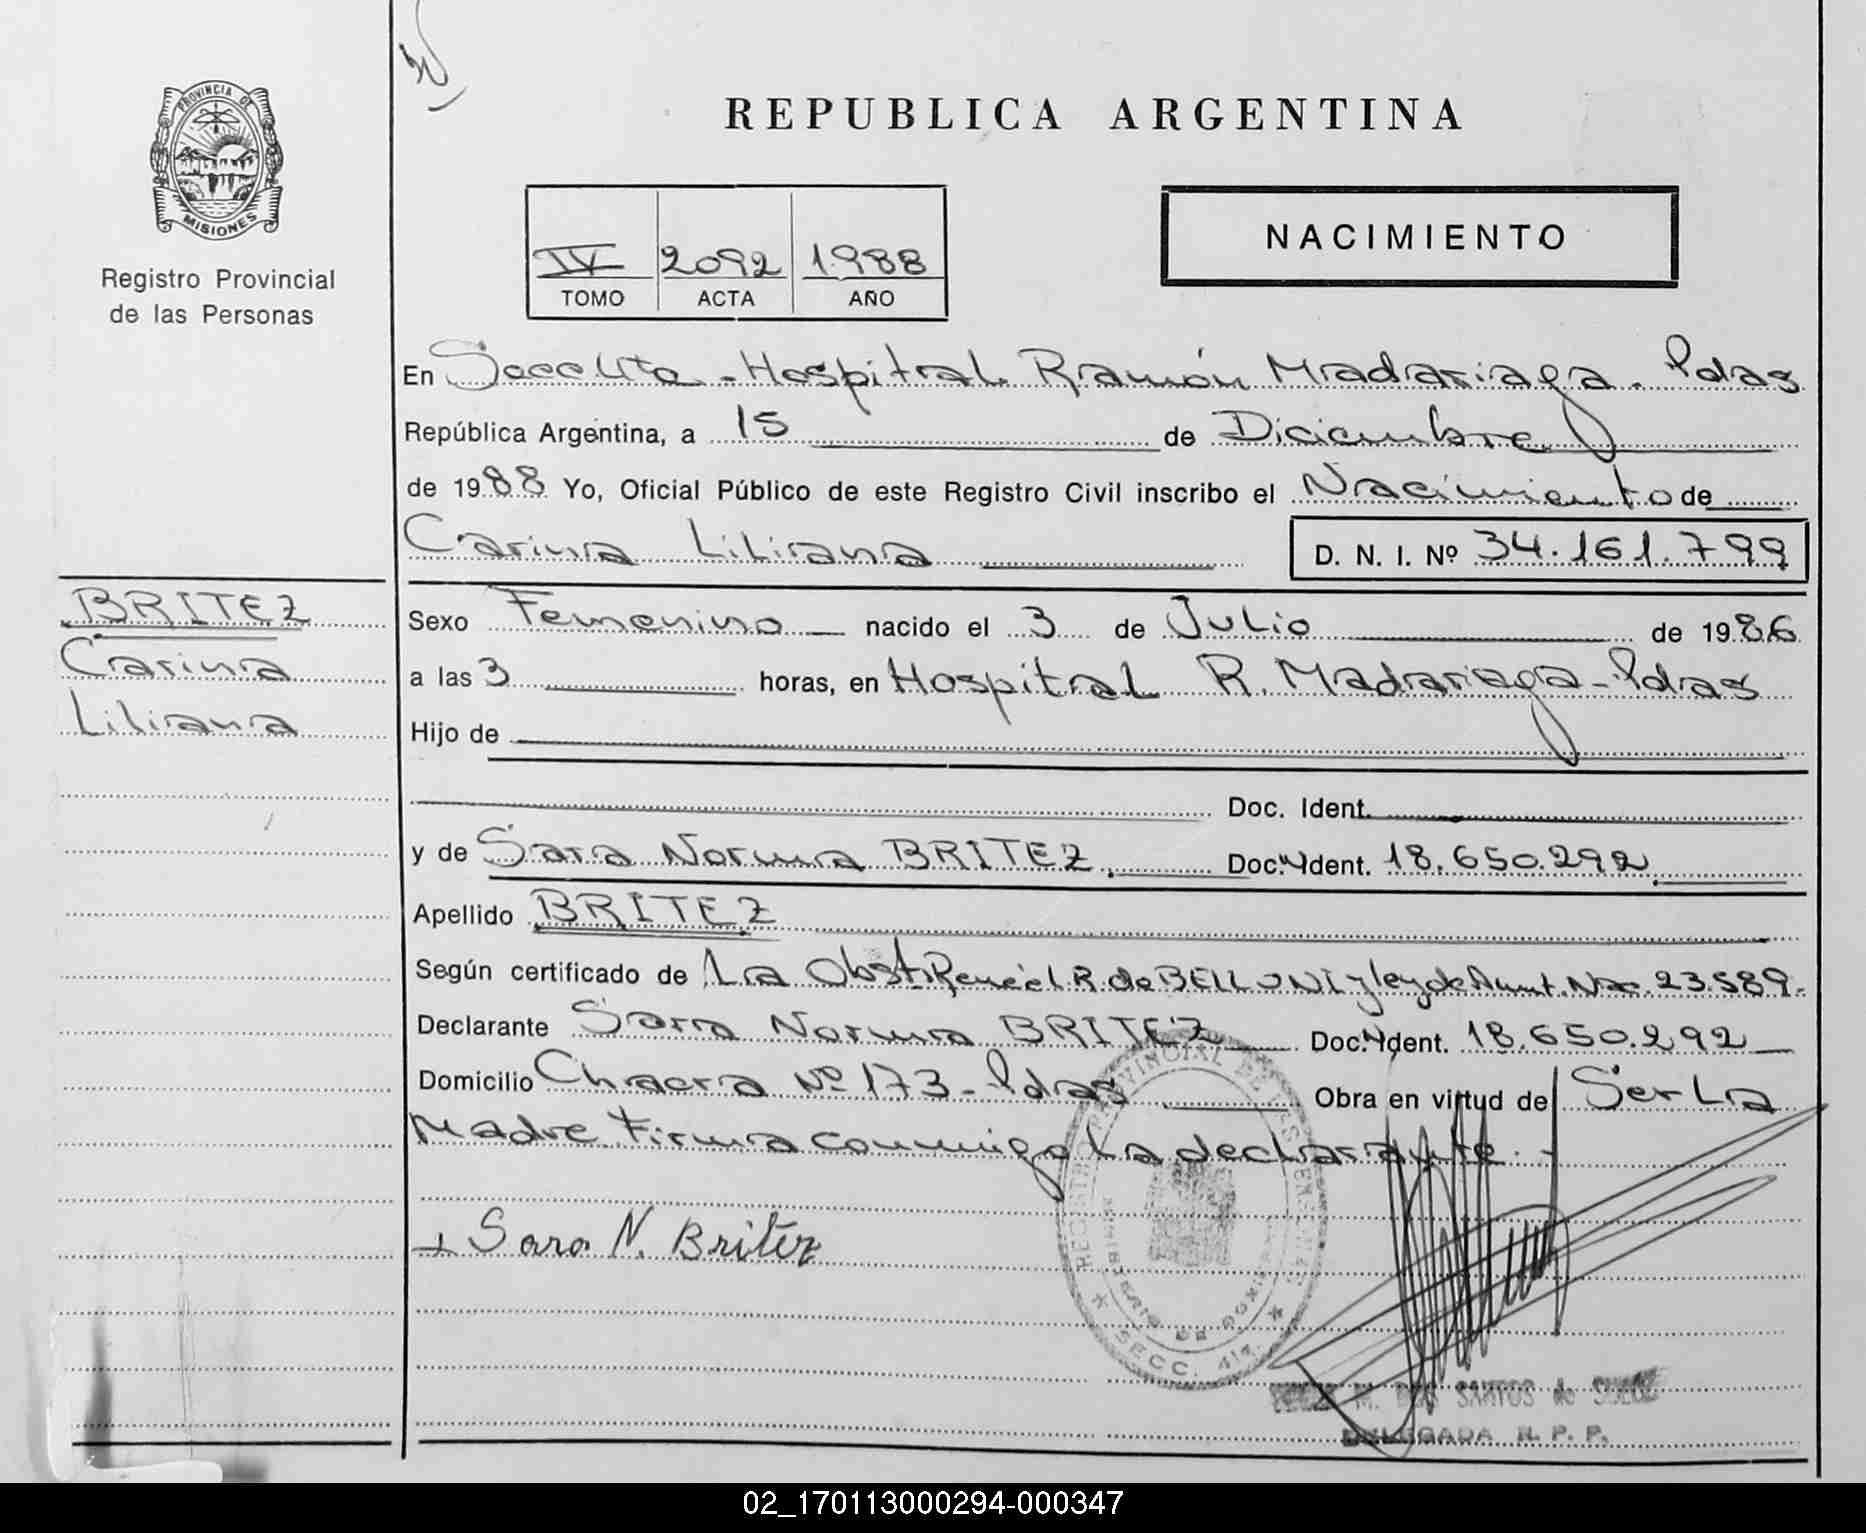 REPUBLICA ARGENTINA
PROVINCIA DE
MISIONES
Registro Provincial
de las Personas
IV 2092 1.988
TOMO ACTA AÑO
NACIMIENTO
En Seccita - Hospital Ramón Madariaga. Pdas
República Argentina, a 15 de Diciembre
de 1988 Yo, Oficial Público de este Registro Civil inscribo el Nacimiento de
Carina Liliana D. N. I. Nº 34.161.799
BRITEZ
Carina
Liliana
Sexo Femenino nacido el 3 de Julio de 1986
a las 3 horas, en Hospital R. Madariaga - Pdas
Hijo de
Doc. Ident.
y de Sara Norma BRITEZ. Doc. Ident. 18.650.292.
Apellido BRITEZ
Según certificado de La Obst. R. de BELLONI y ley de Amnt. Nac. 23.589.
Declarante Sara Norma BRITEZ Doc. Ident. 18.650.292
Domicilio Chacra Nº 173 - Pdas Obra en virtud de Ser La
Madre Firma conmigo La declarante. -
Sara N. Britez
REGISTRO PROVINCIAL DE LAS PERSONAS
MINISTERIO DE GOBIERNO
SECC. 414
M. DOS SANTOS de
DELEGADA R. P. P.
02_170113000294-000347